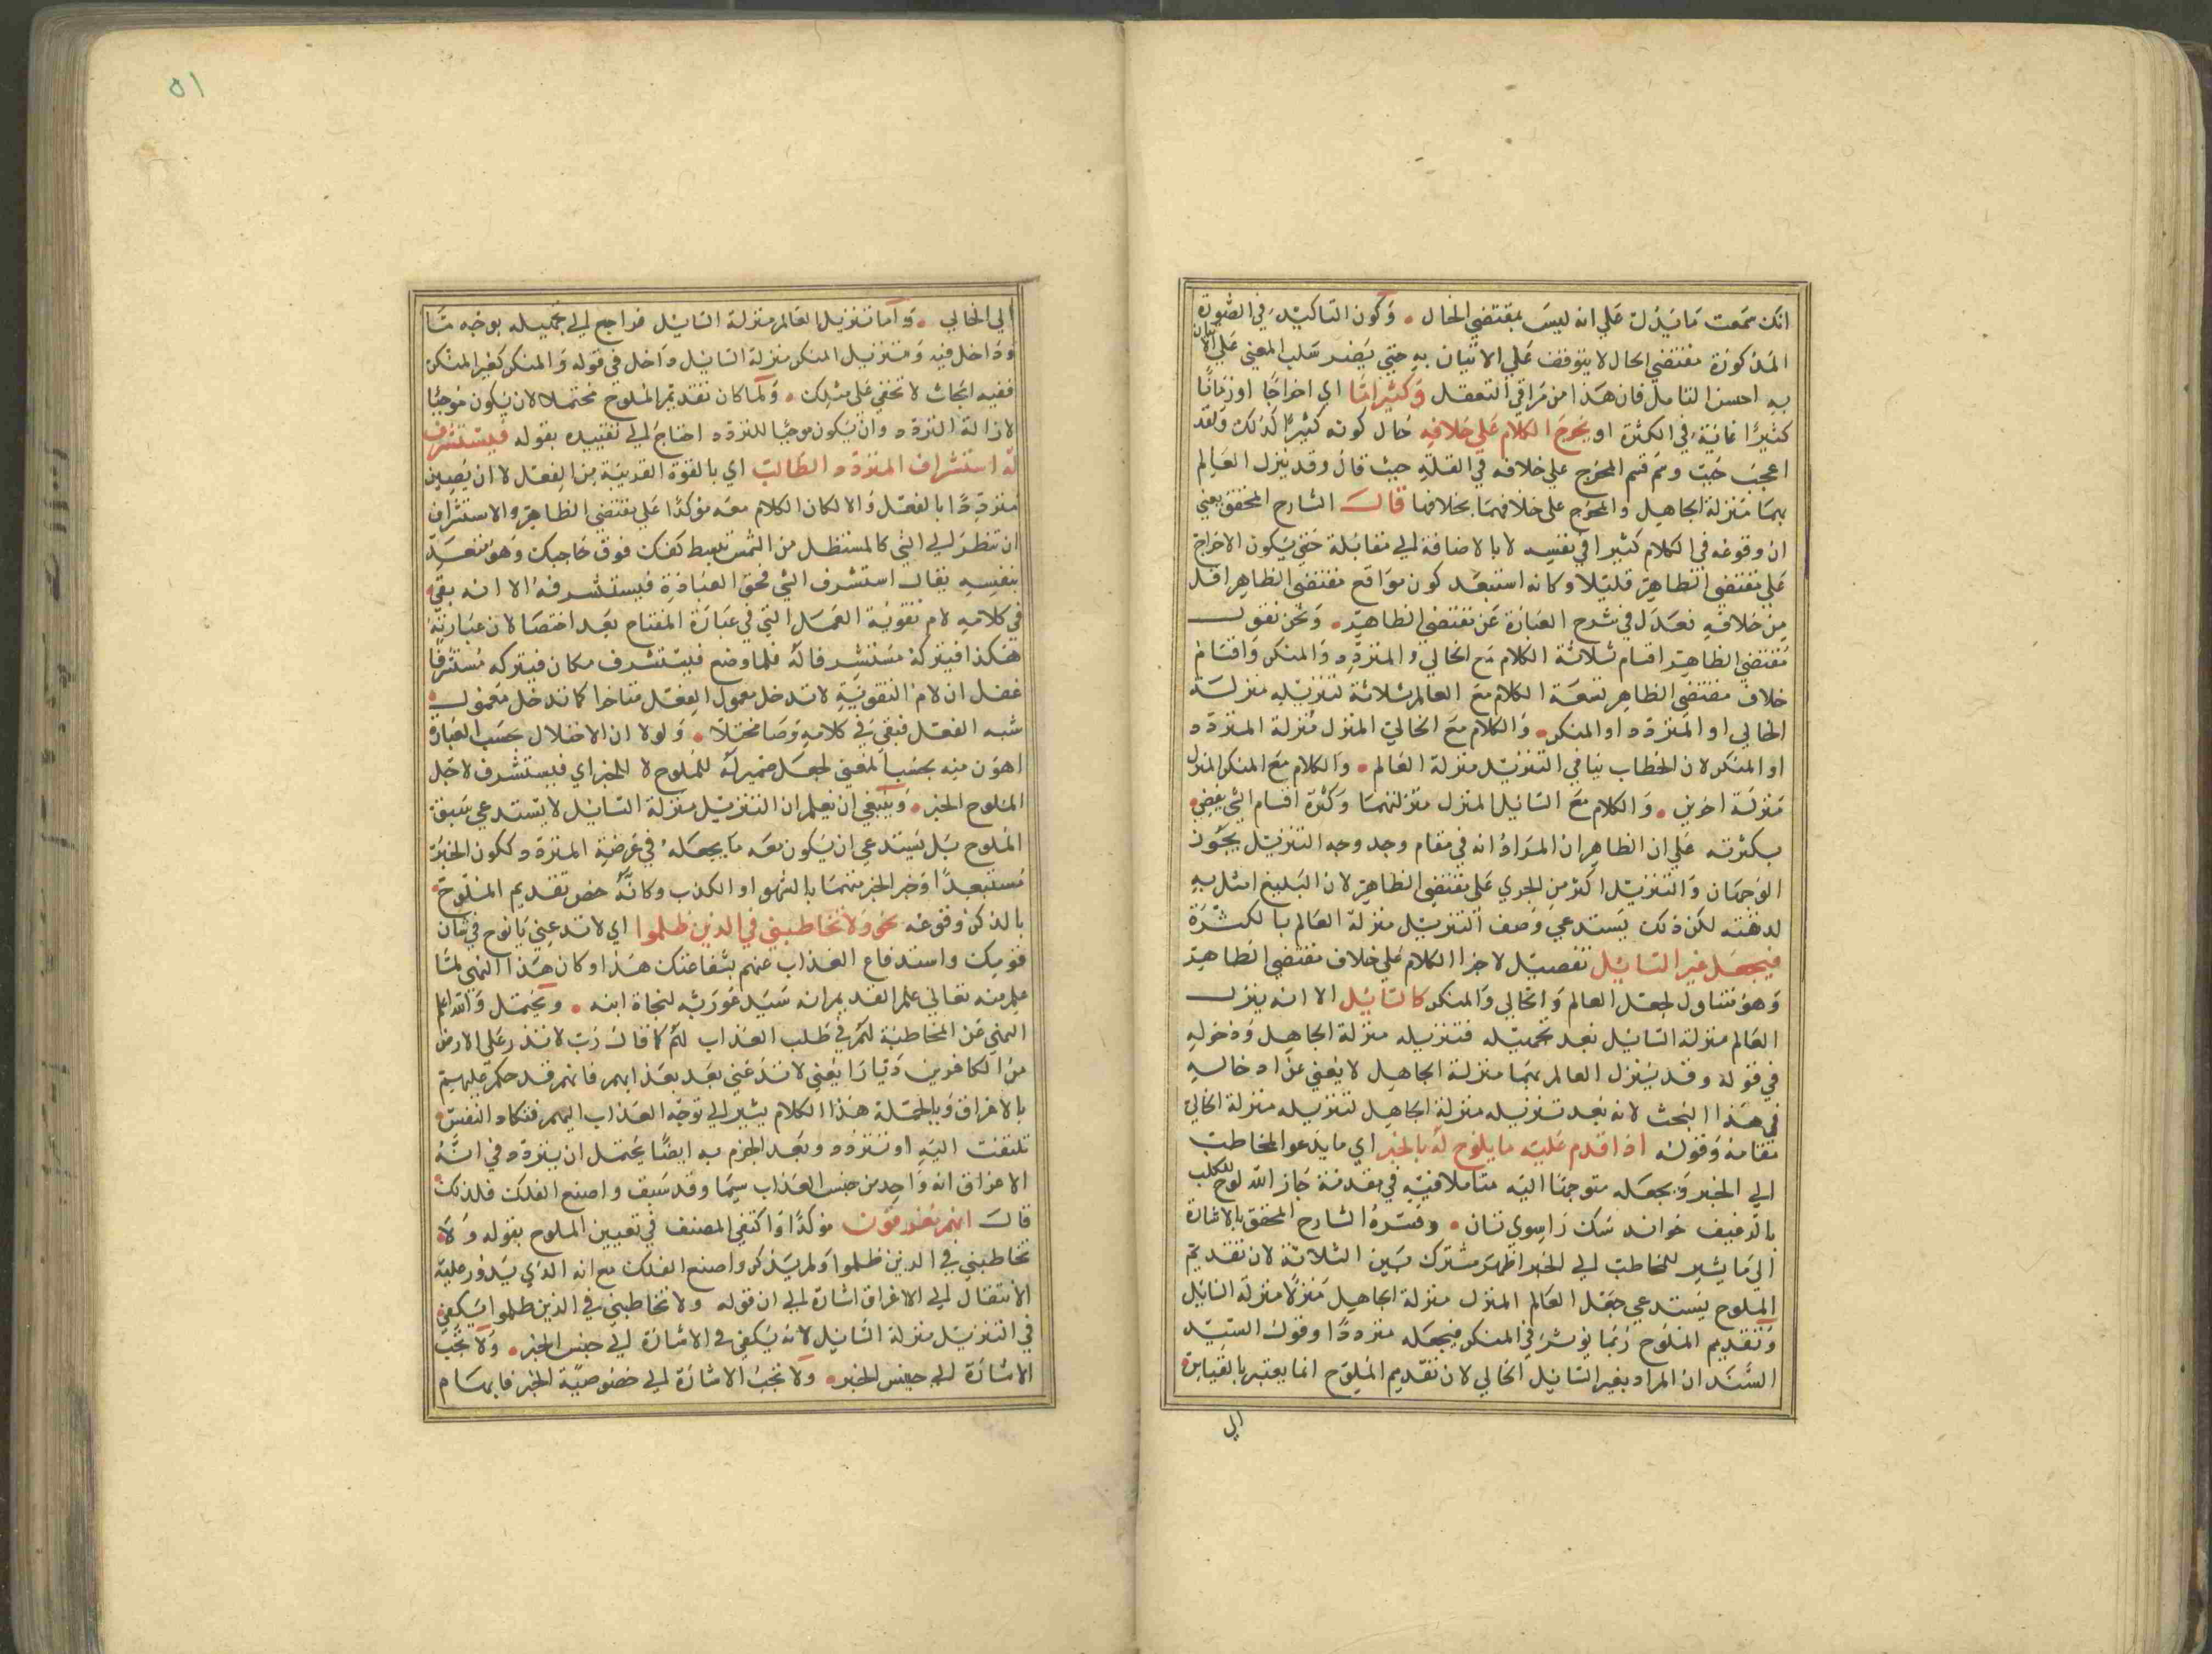 انك سمعت ما يدل علي انه ليس بمقتضي الحال . وكون التاكيد في الصورة
المذكورة مقتضي الحال لا يتوقف علي الاتيان به حتي يضر سلب المعني علي الاتيان
به احسن التامل فان هذا من مزاقي التعقل وكثيرا ما اي اخراجا او زمانا
كثيرا غاية في الكثرة او يخرج الكلام علي خلافه حال كونه كثيرا كذلك ولقد
اعجب حيث وسم قسم المخرج علي خلافه في القلة حيث قال وقد ينزل العالم
بهما منزلة الجاهل والمخرج علي خلافهما بخلافها قال الشارح المحقق يعني
ان وقوعه في الكلام كثيرا في نفسه لا بالاضافة الي مقابلة حتي يكون الاخراج
علي مقتضي الظاهر قليلا وكانه استبعد كون مواقع مقتضي الظاهر اقل
من خلافه فعدل في شرح العبارة عن مقتضي الظاهر . ونحن نقول
مقتضي الظاهر اقسام ثلاثة الكلام مع الخالي والمتردد والمنكر واقسام
خلاف مقتضي الظاهر تسعة الكلام مع العالم ثلاثة لتنزيله منزلة
الخالي او المتردد او المنكر . والكلام مع الخالي المنزل منزلة المتردد
او المنكر لان الخطاب ينافي التنزيل منزلة العالم . والكلام مع المنكر المنزل
منزلة اخرين . والكلام مع السائل المنزل منزلتهما وكثرة اقسام الشي يفضي
بكثرته علي ان الظاهر ان المراد انه في مقام وجد وجه التنزيل يجوز
الوجهان والتنزيل اكثر من الجري علي مقتضي الظاهر لان البليغ امثل به
لدقته لكن ذلك يستدعي وصف التنزيل منزلة العالم بالكثرة
فيجعل غير السائل تفصيل لاجرا الكلام علي خلاف مقتضي الظاهر
وهو متناول لجعل العالم والخالي والمنكر كالسائل الا انه ينزل
العالم منزلة السائل بعد تجهيله فتنزيله منزلة الجاهل ودخوله
في قوله وقد ينزل العالم بهما منزلة الجاهل لا يغني عن ادخاله
في هذا البحث لانه بعد تنزيله منزلة الجاهل لتنزيله منزلة الخالي
مقامه وقوله اذا قدم عليه ما يلوح له بالخبر اي ما يدعو المخاطب
الي الخبر ويجعله متوجها اليه متاملا فيه في مقدمة جاز الله لوح للكلب
بالرغيف خواند سك را سوي نان . وفسره الشارح المحقق بالاشارة
الي ما يشير للمخاطب الي الخبر اظهر مشترك بين الثلاثة لان تقديم
الملوح يستدعي جعل العالم المنزل منزلة الجاهل منزلا منزلة السائل
وتقديم الملوح ربما يوثر في المنكر فيجعله مترددا وقول السيد
السند ان المراد بغير السائل الخالي لان تقديم الملوح انما يعتبر بالقياس
الي
٥١
الي الخالي . واما تنزيل العالم منزلة السائل فراجع الي تجهيله بوجه ما
وداخل فيه وتنزيل المنكر منزلة السائل داخل في قوله والمنكر كغير المنكر
ففيه ابحاث لا تخفي علي مثلك . ولما كان تقديم الملوح محتملا لان يكون موجبا
لازالة التردد وان يكون موجبا للتردد احتاج الي تقييده بقوله فيستشرف
له استشراف المتردد الطالب اي بالقوة القريبة من الفعل لا ان يصير
مترددا بالفعل والا لكان الكلام معه مؤكدا علي مقتضي الظاهر والاستشراف
ان تنظر الي الشي كالمستظل من الشمس تبسط كفك فوق حاجبك وهو متعد
بنفسه يقال استشرف الشي فحق العبارة فيستشرفه الا انه بقي
في كلامه لام تقوية العمل التي في عبارة المفتاح بعد اختصار لان عبارته
هكذا فيتركه مستشرفا له فلما وضع فيستشرف مكان فيتركه مستشرفا
غفل ان لام التقوية لا تدخل معمول الفعل متاخرا كما تدخل معمول
شبه الفعل فبقي في كلامه وصار مختلا . ولولا ان الاختلال بحسب العبارة
اهون منه بحسب المعني لجعل ضمير له للملوح لا للخبر اي فيستشرف لاجل
الملوح الخبر . وينبغي ان يعلم ان التنزيل منزلة السائل لا يستدعي سبق
الملوح بل يستدعي ان يكون معه ما يجعله في عرضة المتردد ككون الخبر
مستبعدا او خبر المخبر متهما بالسهو او الكذب وكانه خص تقديم الملوح
بالذكر وقوعه نحو ولا تخاطبني في الذين ظلموا اي لا تدعني يا نوح في شان
قومك واستدفاع العذاب عنهم بشفاعتك هذا وكان هذا النهي لما
علم منه تعالي علم القديم انه سيد عورثه لنجاة ابنه . ويحتمل والله اعلم
النهي عن المخاطبة لهم في طلب العذاب لهم كما قال رب لا تذر علي الارض
من الكافرين ديارا يعني لا تدعني بعد بعذابهم فانهم قد حكم عليهم
بالاغراق وبالجملة هذا الكلام يشير الي توجه العذاب اليهم فتكاد النفس
تلتفت اليه او تتردد وبعد الجزم به ايضا يحتمل ان يتردد في انه
الاغراق انه واحد من جنس العذاب سيما وقد سبق واصنع الفلك فلذلك
قال انهم مغرقون مؤكدا واكتفي المصنف في تعيين الملوح بقوله ولا
تخاطبني في الذين ظلموا ولم يذكر واصنع الفلك مع انه الذي يدور عليه
الانتقال الي الاغراق اشارة الي ان قوله ولا تخاطبني في الذين ظلموا يكفي
في التنزيل منزلة السائل لانه يكفي في الاشارة الي جنس الخبر . ولا تجب
الاشارة الي جنس الخبر . ولا تجب الاشارة الي خصوصية الخبر فابهام